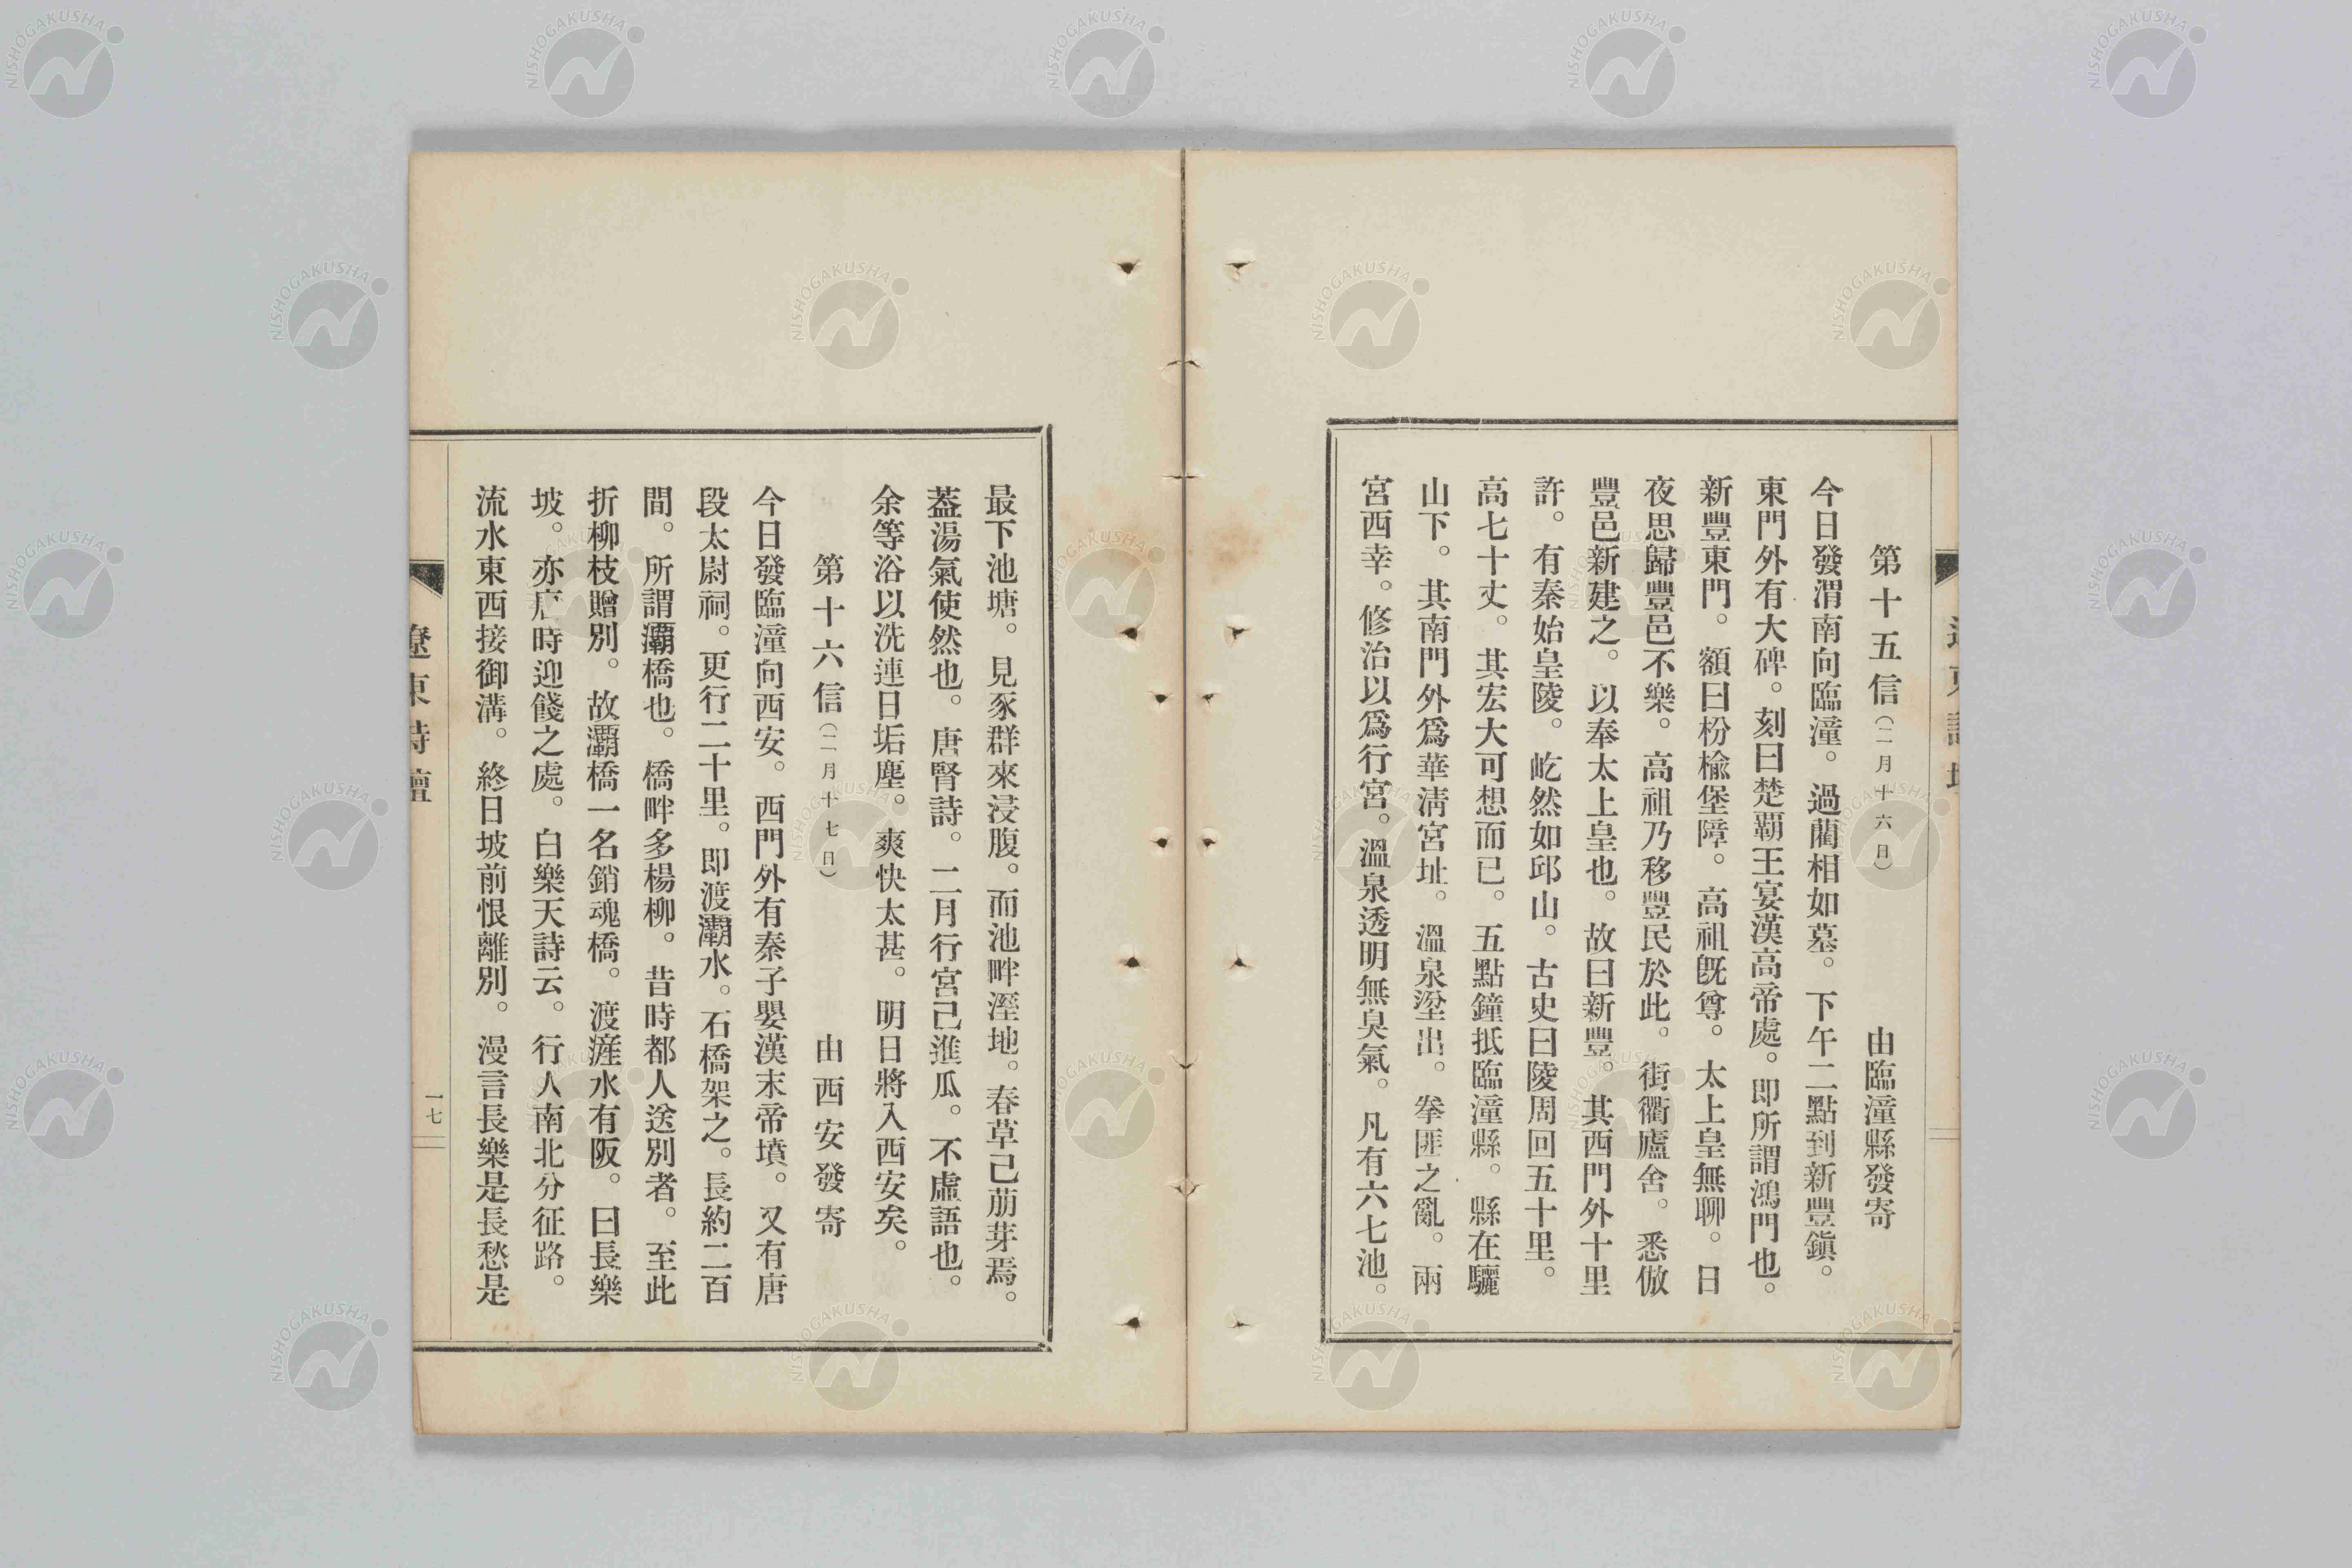 第十五信(二月十六日)　由臨潼縣發寄
今日發渭南向臨潼。過藺相如墓。下午二點到新豐鎭。
東門外有大碑。刻曰楚覇王宴漢高帝處。即所謂鴻門也。
新豐東門。額曰枌楡堡障。高祖旣尊。太上皇無聊。日
夜思歸豐邑不樂。高祖乃移豐民於此。街衢廬舍。悉倣
豐邑新建之。以奉太上皇也。故曰新豐。其西門外十里
許。有秦始皇陵。屹然如邱山。古史曰陵周回五十里。
高七十丈。其宏大可想而已。五點鐘抵臨潼縣。縣在驪
山下。其南門外爲華淸宮址。溫泉塗出。拳匪之亂。兩
宮西幸。修治以爲行宮。溫泉透明無臭氣。凡有六七池。
最下池塘。見豕群來浸腹。而池畔溼地。春草己萠芽焉。
葢湯氣使然也。唐腎詩。二月行宮己進瓜。不虛語也。
余等浴以洗連日垢塵。爽快太甚。明日將入西安矣。
第十六信(二月十七日)　由西安發寄
今日發臨潼向西安。西門外有秦子嬰漢末帝墳。又有唐
段太尉祠。更行二十里。即渡灞水。石橋架之。長約二百
間。所謂灞橋也。橋畔多楊柳。昔時都人送別者。至此
折柳枝贈別。故灞橋一名銷魂橋。渡滻水有阪。曰長樂
坡。亦唐時迎餞之處。白樂天詩云。行人南北分征路。
流水東西接御溝。終日坡前恨離別。漫言長樂是長愁是
遼東詩壇
一七